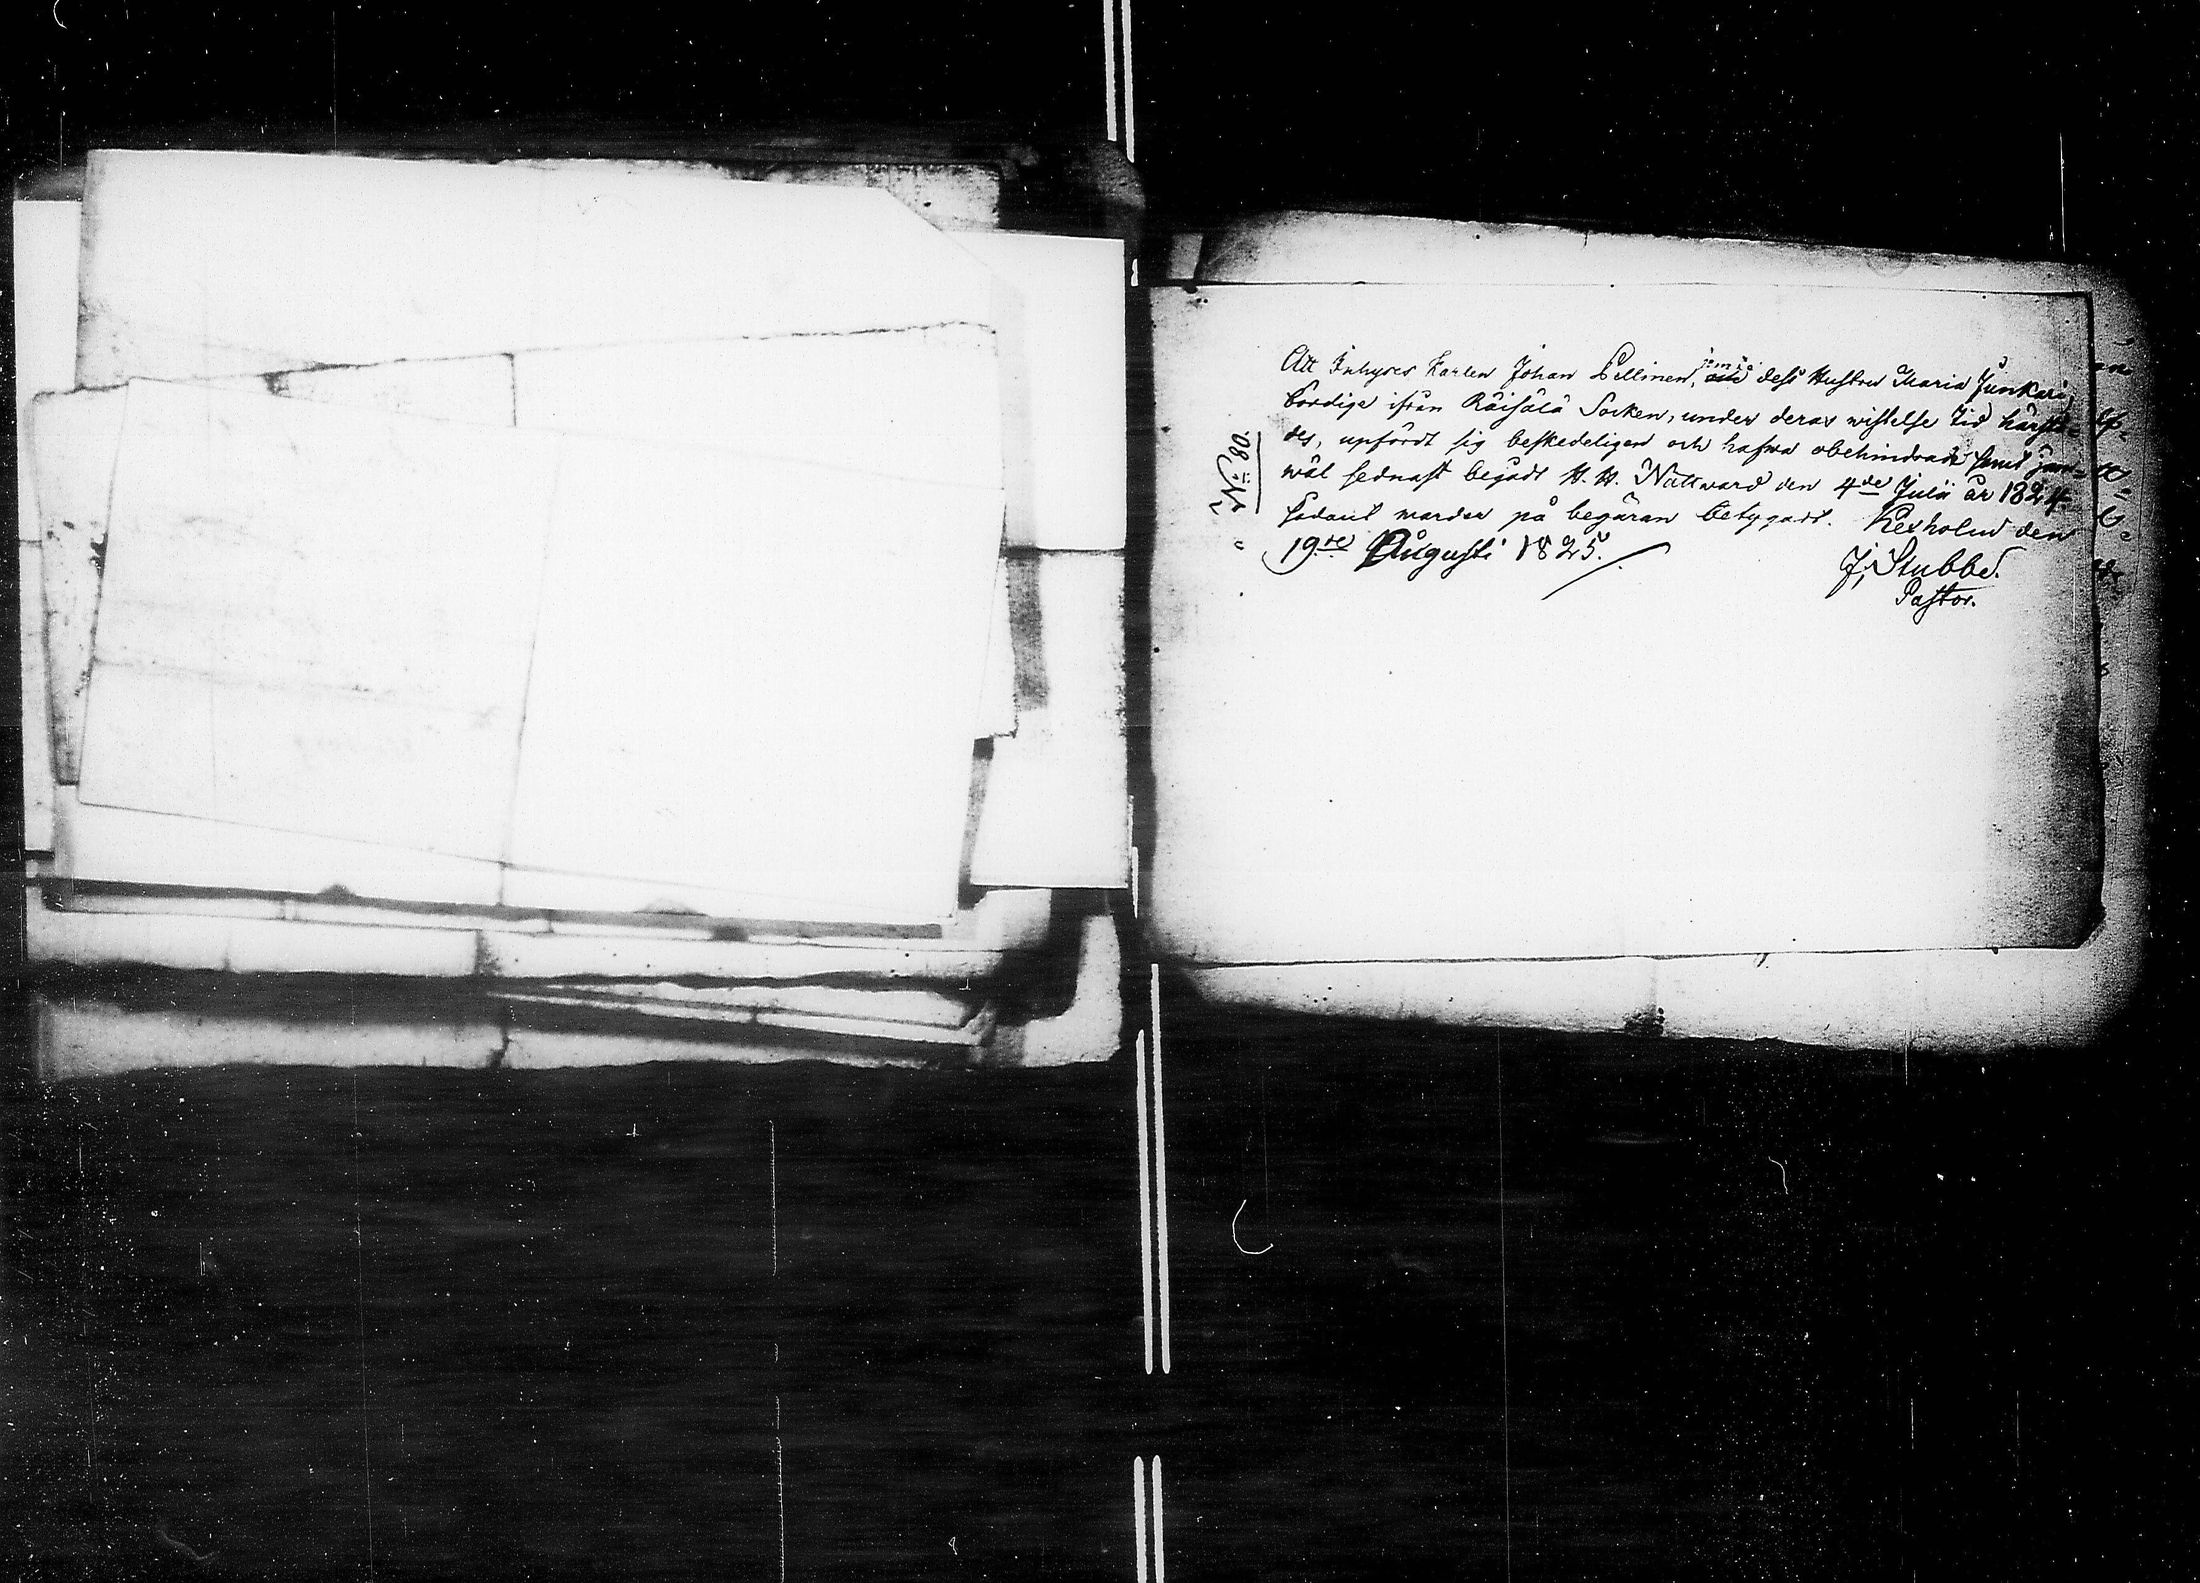 N:o 80.
Att Inhyses Karlen Johan Pellinen, jemte dess Hustru Maria Junkari,
bördige ifrån Räisälä Socken, under deras wistelse tid härstä-
des, upfördt sig beskedeligen och hafwa obehindrade samt jem-
wäl sednast begådt H. H. Nattward den 4de Julii år 1824
sådant warder på begäran betygadt. Kexholm den
19de Augusti 1825.
J. Stubbe.
Pastor.